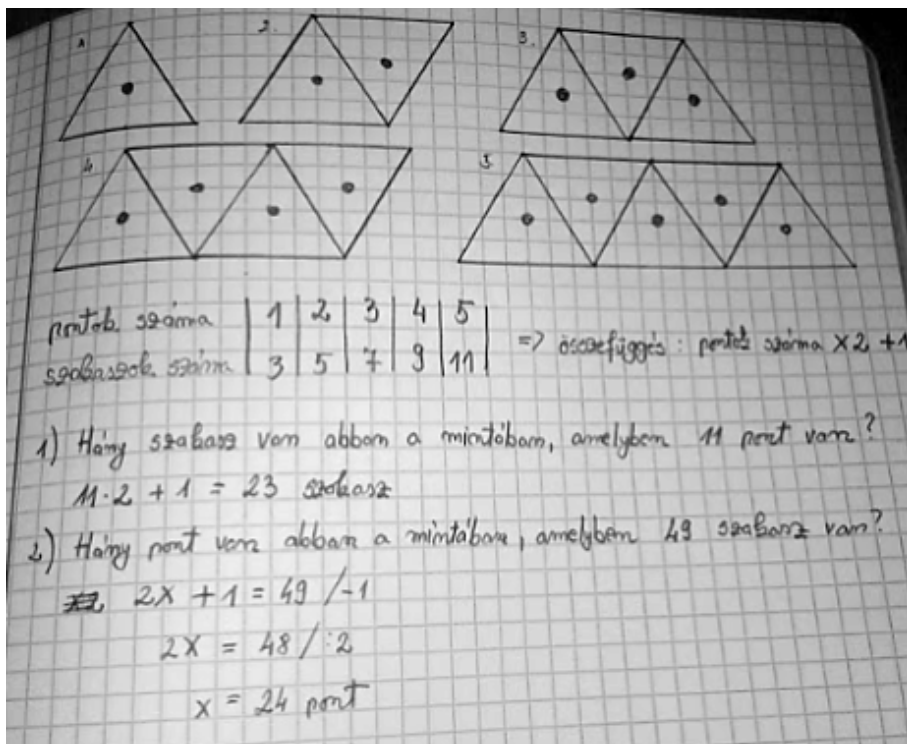 1.
2.
3.
4.
5.
pontok száma | 1 | 2 | 3 | 4 | 5 |
szakaszok száma | 3 | 5 | 7 | 9 | 11 |
=> összefüggés: pontok száma x 2 + 1
1) Hány szakasz van abban a mintában, amelyben 11 pont van?
11 · 2 + 1 = 23 szakasz
2) Hány pont van abban a mintában, amelyben 49 szakasz van?
2x + 1 = 49 /-1
2x = 48 /:2
x = 24 pont